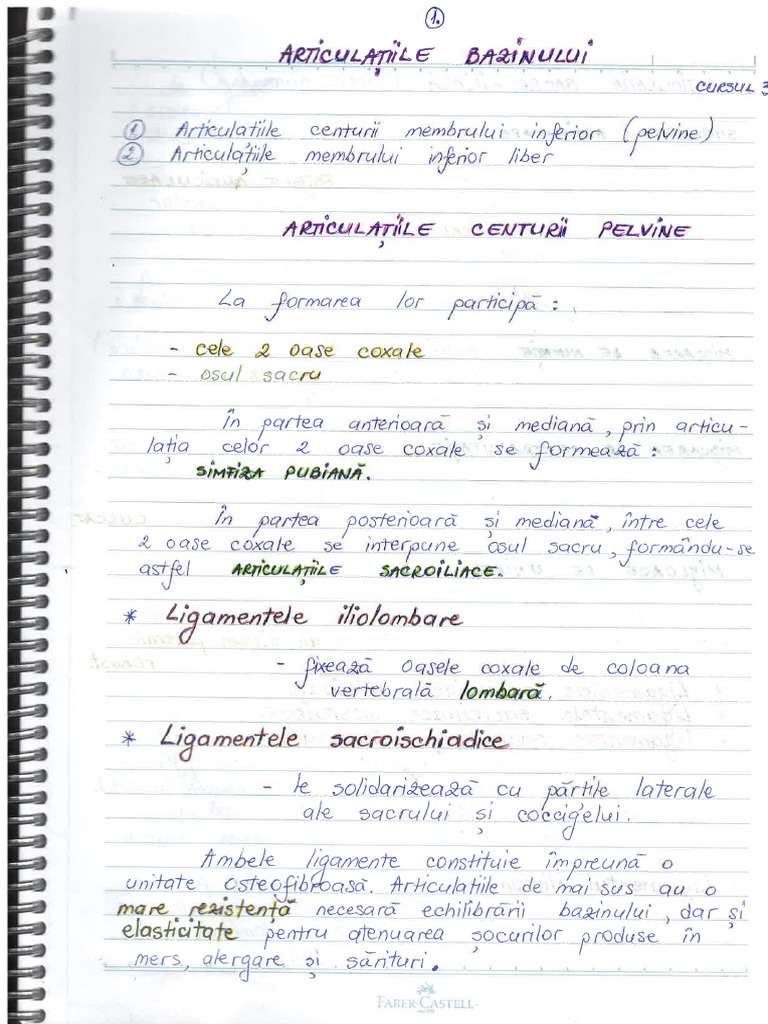 1.
ARTICULAȚIILE BAZINULUI
CURSUL 3
1 Articulatiile centurii membrului inferior (pelvine)
2 Articulațiile membrului inferior liber
ARTICULAȚIILE CENTURII PELVINE
La formarea lor participă:
- cele 2 oase coxale
- osul sacru
În partea anterioară și mediană, prin articu-
lația celor 2 oase coxale se formează:
SIMFIZA PUBIANĂ.
În partea posterioară și mediană, între cele
2 oase coxale se interpune osul sacru, formându-se
astfel ARTICULAȚIILE SACROILIACE.
* Ligamentele iliolombare
- fixează oasele coxale de coloana
vertebrală lombară.
* Ligamentele sacroischiadice
- le solidarizează cu părțile laterale
ale sacrului și coccigelui.
Ambele ligamente constituie împreună o
unitate osteofibroasă. Articulatiile de mai sus au o
mare rezistență necesară echilibrării bazinului, dar și
elasticitate pentru atenuarea șocurilor produse în
mers, alergare și sărituri.
FABER-CASTELL